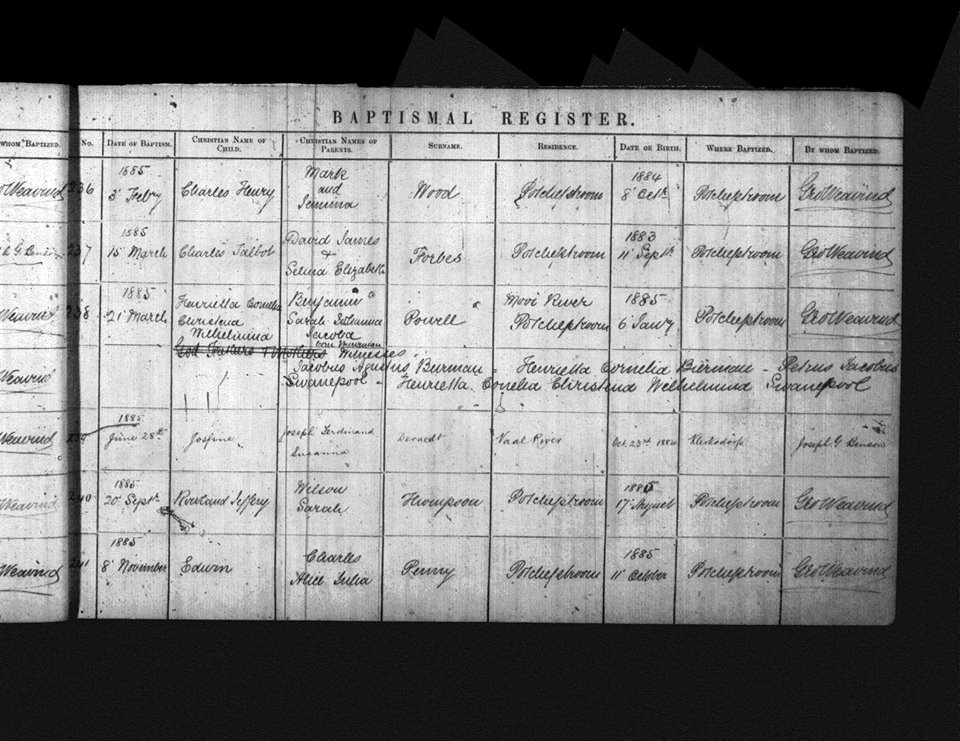 BAPTISMAL REGISTER.
WHOM BAPTIZED. No. DATE OF BAPTISM. CHRISTIAN NAME OF CHILD. CHRISTIAN NAMES OF PARENTS. SURNAME. RESIDENCE. DATE OF BIRTH. WHERE BAPTIZED. BY WHOM BAPTIZED.
Geo Weavind 236 1885 3 Febry Charles Henry Mark and Jemima Wood Potchefstroom 1884 8 Octr Potchefstroom Geo Weavind
G Benson 237 1885 15 March Charles Talbot David James + Selina Elizabeth Forbes Potchefstroom 1883 11 Septr Potchefstroom Geo Weavind
Weavind 238 1885 21 March Henrietta Cornelia Christena Wilhelmina Benjamin Sarah Johanna Jacoba Powell Mooi River Potchefstroom 1885 6 Jany Potchefstroom Geo Weavind
God Fathers + Mothers Witnesses
Jacobus Agustus Burman - Henrietta Cornelia Bierman - Petrus Jacobus
Weavind Swanepool - Henrietta Conelia Christena Welhelmina Swanepool
Weavind 239 1885 June 28th Josfine Joseph Ferdinand Susanna Deraedt Vaal River Oct 23rd 1884 Klerksdorp Joseph G Benson
Weavind 240 1885 20 Septr Rowland Jeffery Wilson Sarah Thompson Potchefstroom 1885 17 August Potchefstroom Geo Weavind
Weavind 241 1885 8 November Edwin Charles Alice Julia Penny Potchefstroom 1885 11 October Potchefstroom Geo Weavind